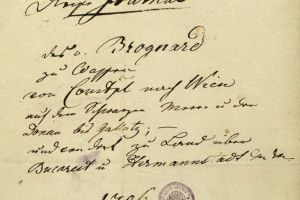 Reise Journal
des v. Brognard
zu Wasser
von Constpl nach Wien
auf dem Schwarzen Meere u der
Donau bis Galatz; —
und von dort zu Land über
Bucarest u Hermannstadt